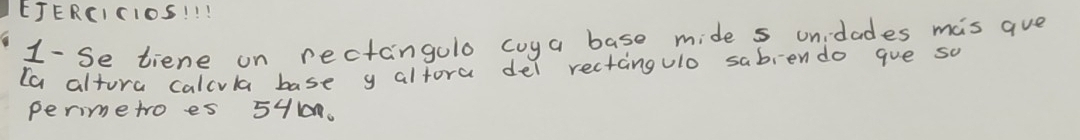 EJERCICIOS!!!
1- Se tiene un rectángulo cuya base mide 5 unidades más que
la altura calcula base y altura del rectángulo sabiendo que su
perimetro es 54 cm.